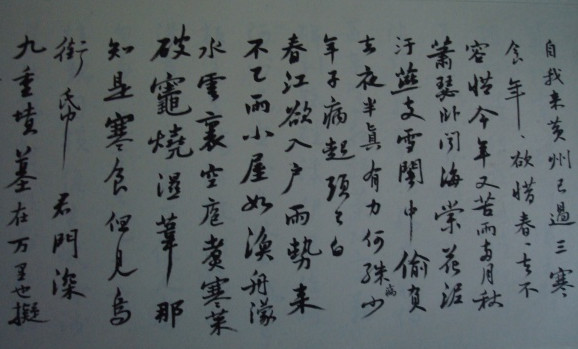 自我来黄州已過三寒
食年、欲惜春、去不
容惜今年又苦雨兩月秋
蕭瑟卧聞海棠花泥
汙燕支雪闇中偷負
去夜半真有力何殊少病
年子病起頭已白
春江欲入户雨勢来
不已雨小屋如漁舟濛
水雲裏空庖煮寒菜
破竈燒濕葦那
知是寒食但見烏
銜帋君門深
九重墳墓在万里也擬